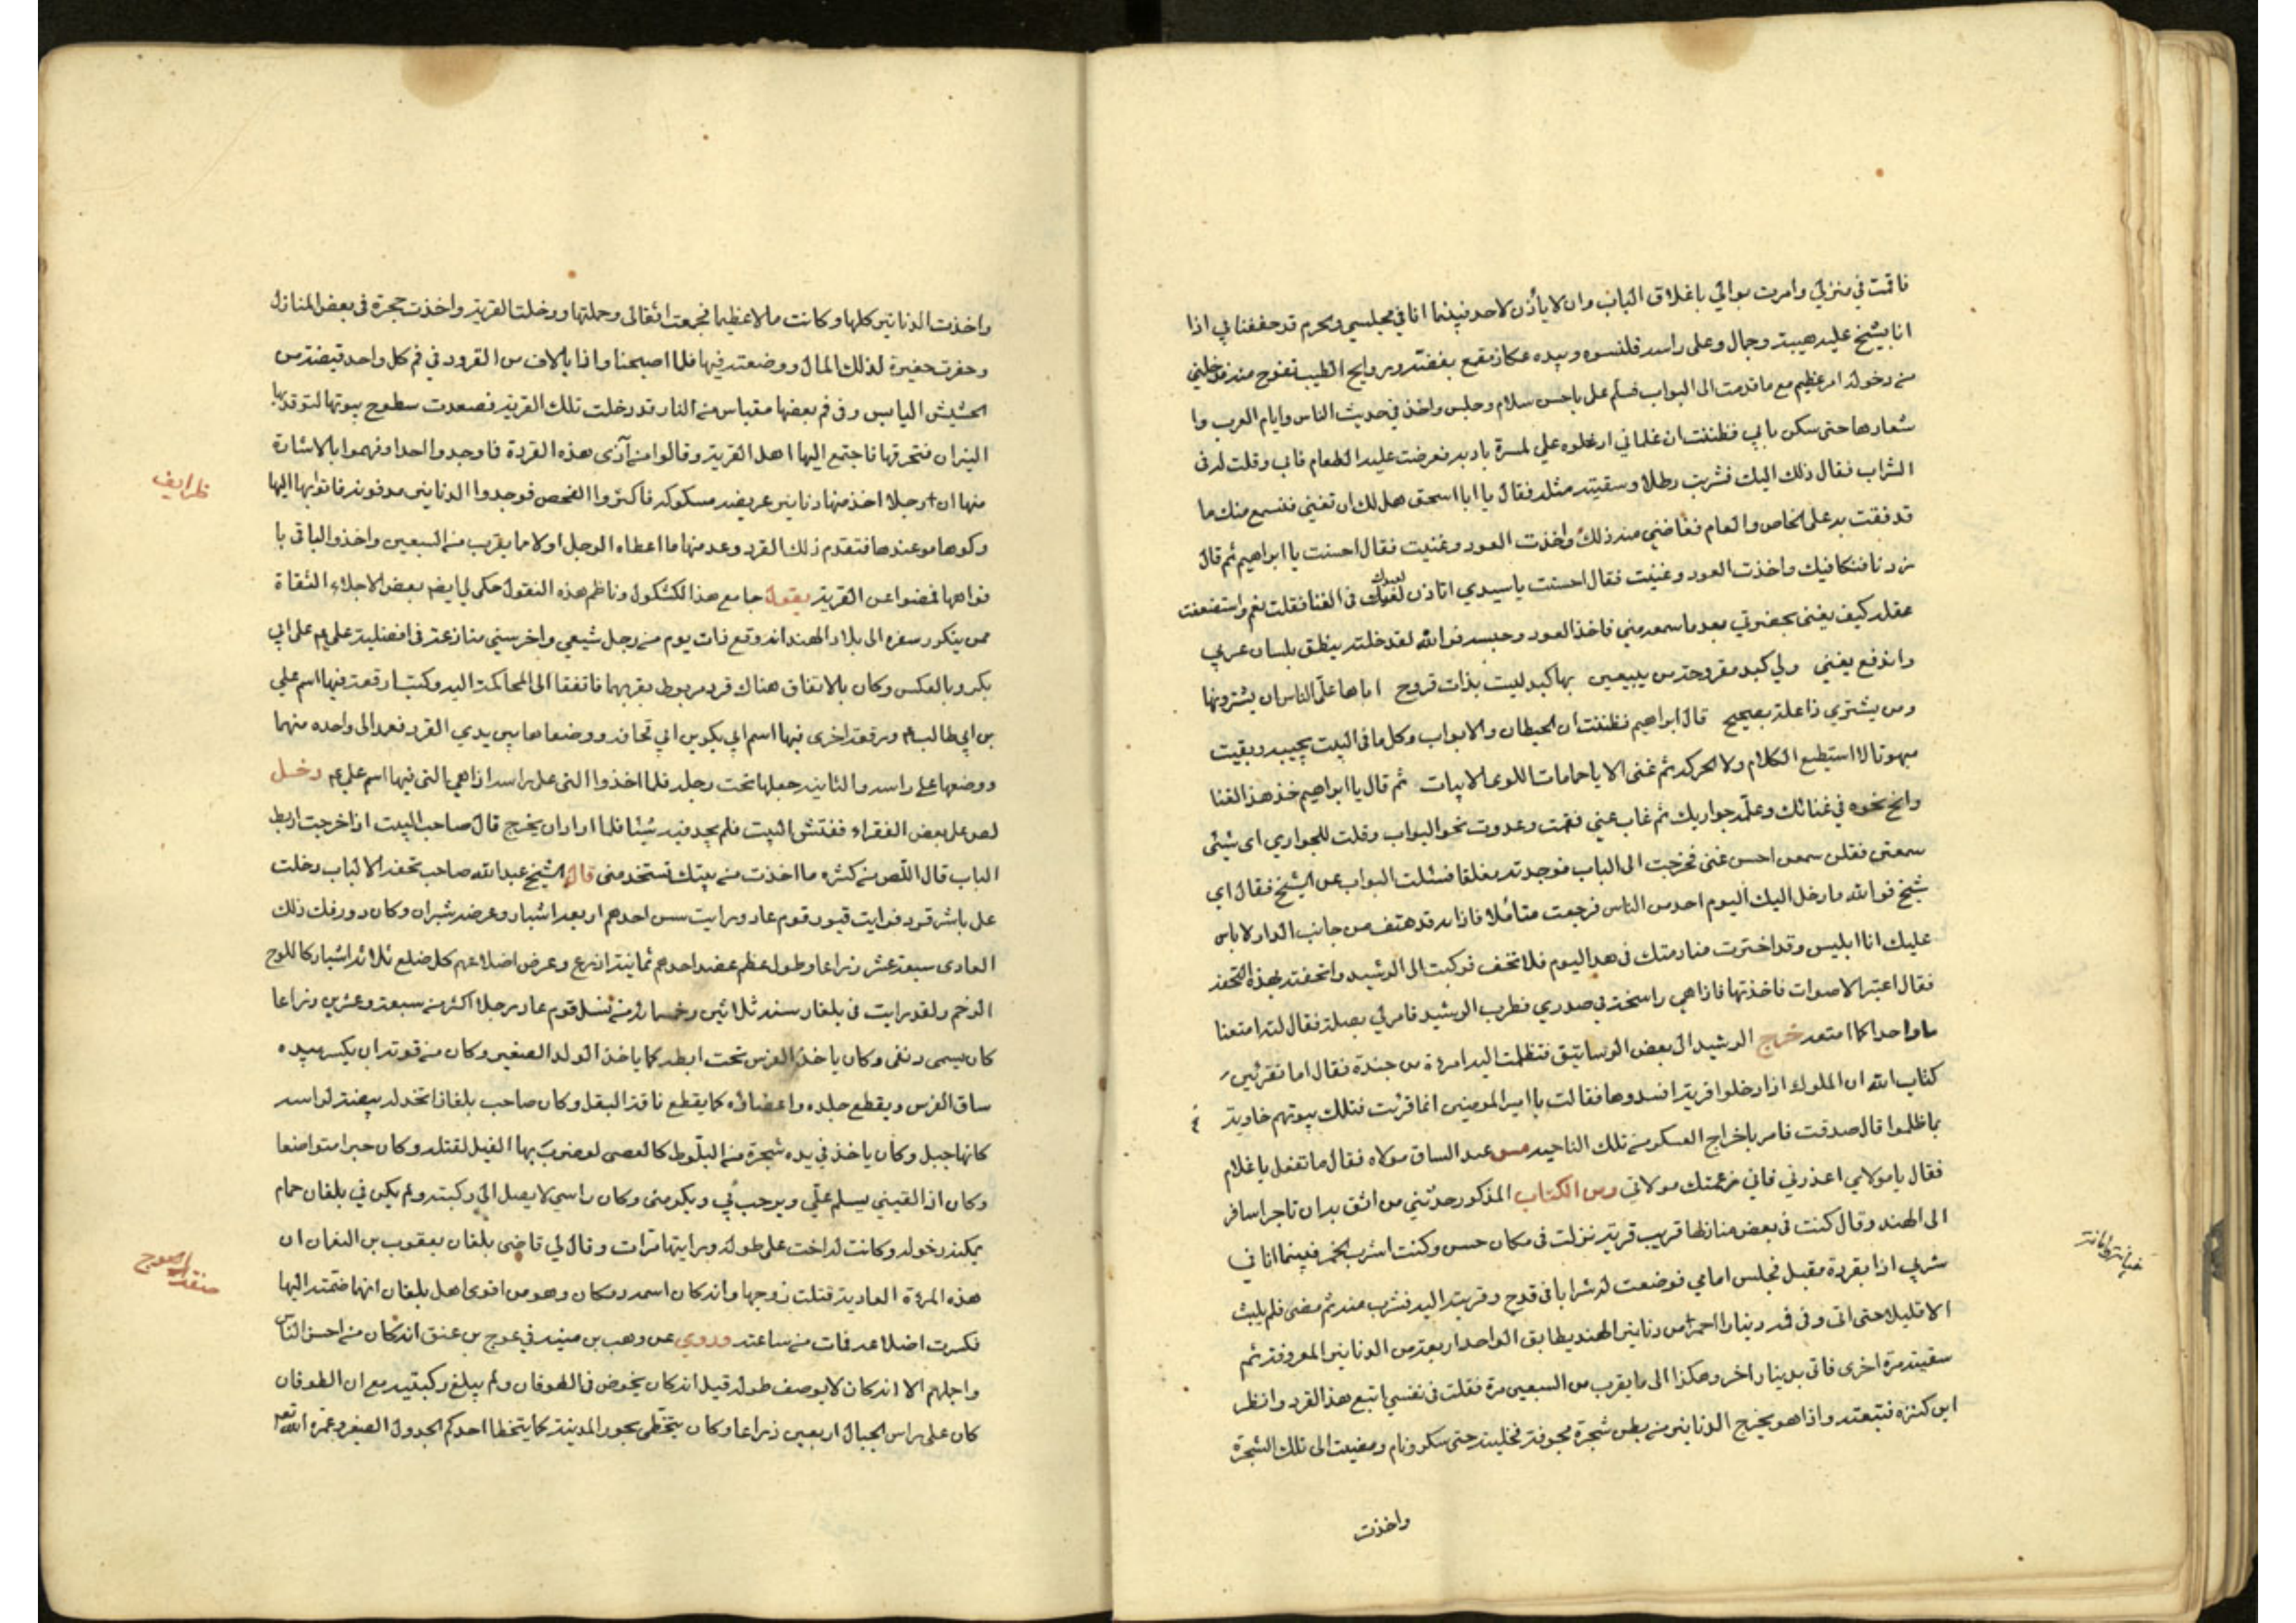 فاقمت في منزلي وامرت بوابي باغلاق الباب وان لا يأذن لاحد فبينما انا في مجلسي والحرم قد حففنا بي اذا
انا بشيخ عليه هيبة وجمال وعلى راسه قلنسوه وبيده عكاز مقمع بفضة وروايح الطيب تفوح منه فدخلني
من دخوله امر عظيم مع ما قدمت الى البواب فسلم علي باحسن سلام وجلس واخذ في حديث الناس وايام العرب وا
شعارها حتى سكن ما بي فظننت ان غلماني ادخلوه علي لمسرة بادبه فعرضت عليه الطعام فابى وقلت له في
الشراب فقال ذلك اليك فشربت رطلا وسقيته مثله فقال يا ابا اسحق هل لك ان تغني فنسمع منك ما
قد فقت به على الخاص والعام فغاضني منه ذلك واخذت العود وغنيت فقال احسنت يا ابراهيم ثم قال
زدنا فنكافيك واخذت العود وغنيت فقال احسنت يا سيدي اتاذن لعبدك في الغنا فقلت نعم واستضعفت
عقله كيف يغني بحضرتي بعد ما سمعه مني فاخذ العود وجسه فوالله لقد خلته ينطق بلسان عربي
واندفع يغني ولي كبد مقروحة من يبيعني بها كبد ليست بذات قروح اباها علي الناس ان يشترونها
ومن يشتري ذا علة بصحيح قال ابراهيم فظننت ان الحيطان والابواب وكل ما في البيت يجيبه وبقيت
مبهوتا لا استطيع الكلام ولا الحركة ثم غنى الا يا حمامات اللوى الابيات ثم قال يا ابراهيم خذ هذا الغنا
وانح نحوه في غنائك وعلمه جواريك ثم غاب عني فقمت وعدوت نحو البواب وقلت للجواري اي شيئ
سمعتن فقلن سمعنا احسن غنى فخرجت الى الباب فوجدته مغلقا فسئلت البواب عن الشيخ فقال اي
شيخ فوالله ما دخل اليك اليوم احد من الناس فرجعت متأملا فاذا به قد هتف من جانب الدار لا باس
عليك انا ابليس وقد اخترت منادمتك في هذا اليوم فلا تخف فركبت الى الرشيد واتحفته بهذه التحفة
فقال اعتبر الاصوات فاخذتها فاذا هي راسخة في صدري فطرب الرشيد فامر لي بصلة فقال ليته امتعنا
يوما واحدا كما امتعه خرج الرشيد الى بعض الرساتيق فتظلمت اليه امرءة من جنده فقال اما تقرئين
كتاب الله ان الملوك اذا دخلوا قرية افسدوها فقالت يا امير المومنين انما قرئت فتلك بيوتهم خاوية
بما ظلموا قال صدقت فامر باخراج العسكر من تلك الناحية مس عبد الساق مولاه فقال ما تفعل يا غلام
فقال يا مولاي اعذرني فاني زعمتك مولاتي ومن الكتاب المذكور حدثني من اثق به ان تاجرا سافر
الى الهند وقال كنت في بعض منازلها قريب قرية نزلت في مكان حسن وكنت اشرب الخمر فبينما انا في
شربي اذا بقردة مقبل فجلس امامي فوضعت له شرابا في قدح وقربته اليه فشرب منه ثم مضى فلم يلبث
الا قليلا حتى اتى وفي فمه دينارا احمرا من دنانير الهند يطابق الواحد اربعة من الدنانير المعروفة ثم
سقيته مرة اخرى فاتى بدينار اخر وهكذا الى ما يقرب من السبعين مرة فقلت في نفسي اتبع هذا القرد وانظر
اين كنزه فتبعته واذا هو يخرج الدنانير من بطن شجرة مجوفة فخليته حتى سكر ونام ومضيت الى تلك الشجرة
واخذت
واخذت الدنانير كلها وكانت مالا عظيما فجمعت اثقالي وحملتها ودخلت القرية واخذت حجرة في بعض المنازل
وحفرت حفيرة لذلك المال ووضعته فيها فلما اصبحنا واذا بالاف من القرود في فم كل واحد قبضة من
الحشيش اليابس وفي فم بعضها مقباس من النار قد دخلت تلك القرية فصعدت سطوح بيوتها لتوقد بها
النيران فتحرقها فاجتمع اليها اهل القرية وقالوا من آذى هذه القردة فاوجدوا احدا وفهموا بالاشارة
ظرايف
منها ان رجلا اخذ منها دنانير عريضه مسكوكه فاكثروا الفحص فوجدوا الدنانير مدفونه فاتوا بها اليها
وكوموها عندها فتقدم ذلك القرد وعد منها ما اعطاه الرجل اولا ما يقرب من السبعين واخذوا الباقي با
فواهها فمضوا عن القرية يقول جامع هذا لكشكول وناظم هذه النقول حكى لي ايضا بعض الاجلاء الثقاة
ممن يتكرر سفره الى بلاد الهند انه وقع ذات يوم من رجل شيعي واخر سني منازعة في افضلية علي ع على ابي
بكر وبالعكس وكان بالاتفاق هناك قرد مربوط بقربهما فاتفقا الى المحاكمة اليه وكتبا رقعة فيها اسم علي
بن ابي طالب ع ورقعة اخرى فيها اسم ابي بكر بن ابي قحافه ووضعاها بين يدي القرد فعد الى واحده منهما
ووضعها على راسه والثانيه جعلها تحت رجله فلما اخذوا التي على راسه اذا هي التي فيها اسم علي ع دخل
لص على بعض الفقراء ففتش البيت فلم يجد فيه شيئا فلما اراد ان يخرج قال صاحب البيت اذا خرجت اربط
الباب قال اللص من كثره ما اخذت من بيتك تستخدمني قال الشيخ عبدالله صاحب تحفة الالباب دخلت
على باشقرد فرايت قبور قوم عاد ورايت سن احدهم اربعة اشبار وعرضه شبران وكان دورفك ذلك
العادى سبعة عشر ذراعا وطول عظم عضد احدهم ثمانية اذرع وعرض اضلاعهم كل ضلع ثلاثة اشبار كاللوح
الرخم ولقد رايت في بلغار سنة ثلاثين وخمسمائة من نسل قوم عاد رجلا اكثر من سبعة وعشرين ذراعا
كان يسمى دنقى وكان ياخذ الفرس تحت ابطه كما ياخذ الولد الصغير وكان من قوته ان يكسر بيده
ساق الفرس ويقطع جلده واعضائه كما يقطع باقة البقل وكان صاحب بلغار اتخذ له بيضة لراسه
كانها جبل وكان ياخذ في يده شجرة من البلوط كالعصى لو ضرب بها الفيل لقتله وكان خيرا متواضعا
وكان اذا لقيني يسلم علي ويرحب بي ويكرمني وكان راسي لا يصل الى ركبته ولم يكن في بلغار حمام
يمكنه دخوله وكانت له اخت على طوله ورايتها مرات وقال لي قاضي بلغار يعقوب بن النعمان ان
هذه المرءة العاديه قتلت زوجها وانه كان اسمه دمكان وهو من اقوى اهل بلغار انها ضمته اليها
فكسرت اضلاعه فمات من ساعته وروي عن وهب بن منبه في عوج بن عنق انه كان من احسن الناس
واجملهم الا انه كان لا يوصف طوله قيل انه كان يخوض في الطوفان ولم يبلغ ركبتيه مع ان الطوفان
كان على راس الجبال اربعين ذراعا وكان يتخطى بجور المدينة كما يتخطا احدكم الجدول الصغير وعمره الله